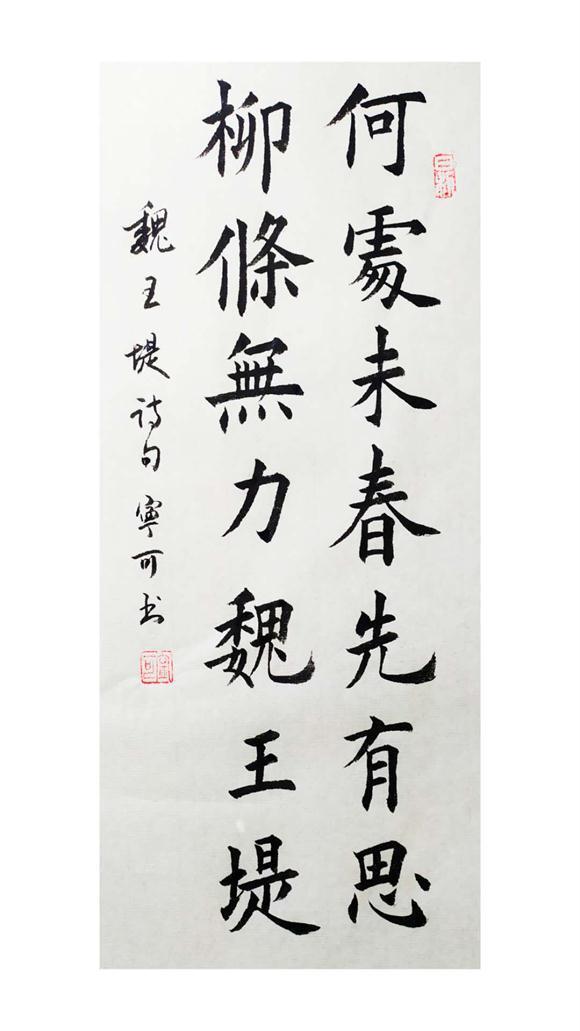 何處未春先有思
柳條無力魏王堤
魏王堤诗句寧可书